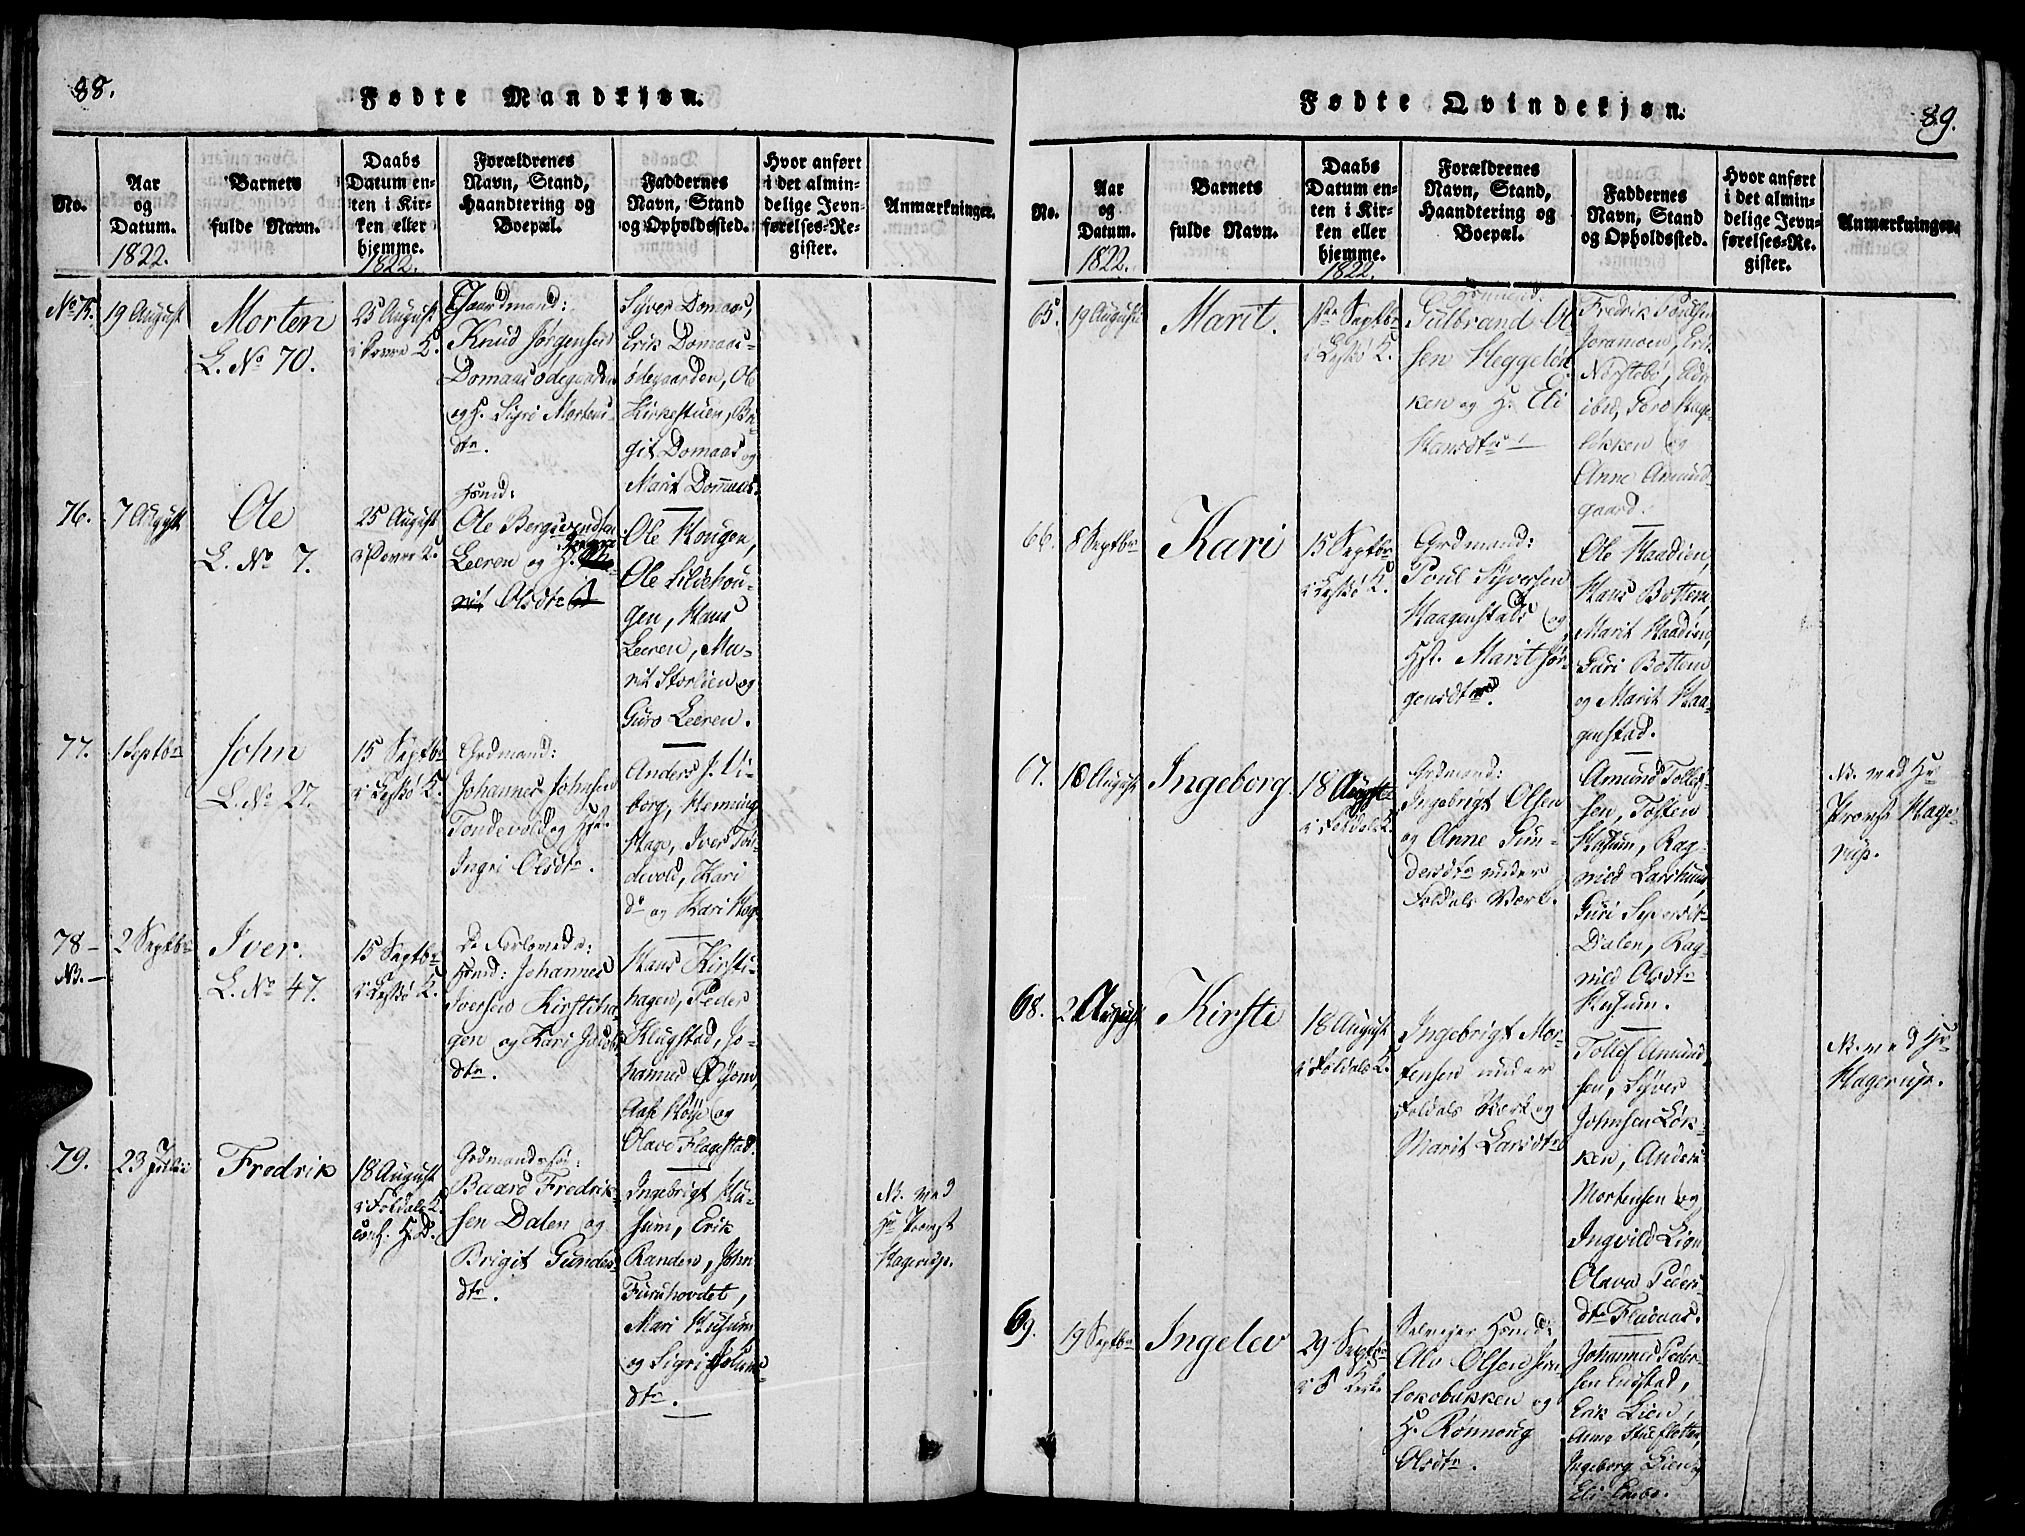 88.
Fødte Mandkjøn.
No.
Aar
og
Datum.
1822.
Barnets
fulde Navn.
Daabs
Datum en-
ten i Kir-
ken eller
hjemme.
1822.
Forældrenes
Navn, Stand,
Haandtering og
Boepæl.
Faddernes
Navn, Stand
og Opholdssted.
Hvor anført
i det almin-
delige Jevn-
førelses-Re-
gister.
Anmærkninger.
No 75.
19 August
Morten
L. No 70.
25 August
i Dovre K.
Gaardmand:
Knud Jørgensen
Domaasødegaarden
og H. Sigri Mortens-
dtr.
Syver Domaas,
Erik Domaas-
ødegaarden, Ole
Kirkestuen, Bri-
git Domaas og
Marit Domaas.
76.
7 August
Ole
L. No 7.
25 August
i Dovre K.
Huusmd:
Ole Bergsvendsen
Leeren og H.
Olsdtr
Ole Hougen,
Ole Lildehou-
gen, Hans
Leeren, Ma-
rit Storlien og
Guro Leeren.
77.
1 Septbr
John
L. No 27.
15 Septbr
i Leskø K.
Grdmand:
Johannes Johnsen
Tondevold og Hst.
Ingri Olsdtr.
Anders J. Vi-
borg, Heming
Hage, Iver Ton-
devold, Kari
do og Kari Hage
78 -
NB. -
2 Septbr
Iver.
L. No 47.
15 Septbr
i Leskø K.
De Forlovede:
Huusmd: Johannes
Iversen Kirstiha-
gen og Kari Jacobs-
dtr.
Hans Kirsti-
hagen, Peder
Klugstad, Jo-
hannes Øyen,
Aase Høye og
Olave Flagestad.
79.
23 Julii
Fredrik
18 August
i Foldals K.
conf. H. D.
Grdmandsfolk:
Baard Fredrik-
sen Dalen og
Brigit Gunders-
dtr.
Ingebrigt Hu-
sum, Erik
Randen, John
Furuhovdet,
Mari Husum
og Sigri
dtr.
NB. ved
Hr Provst
Hagerup.
89.
Fødte Qvindekjøn.
No.
Aar
og
Datum.
1822.
Barnets
fulde Navn.
Daabs
Datum en-
ten i Kir-
ken eller
hjemme.
1822.
Forældrenes
Navn, Stand,
Haandtering og
Boepæl.
Faddernes
Navn, Stand
og Opholdssted.
Hvor anført
i det almin-
delige Jevn-
førelses-Re-
gister.
Anmærkninger.
65.
19 August
Marit.
1ste Septbr
i Leskø K.
Huusmand:
Gulbrand Ol-
sen Heggeløk
ken og H. Eli
Hansdtr
Fredrik Poulsen
Joramoen, Erik
Norstebø, Eldri
ibid, Toro Hage-
løkken og
Anne Amund-
gaard.
66.
8 Septbr
Kari
15 Septbr
i Leskø K.
Grdmand:
Poul Syversen
Haagenstad og
Hst. Marit Jør-
gensdtr.
Ole Haadien,
Hans Botten,
Marit Haadien,
Guri Botten
og Marit Haa-
genstad.
67.
18 August
Ingeborg.
18 August
i Foldals K.
Grdmand:
Ingebrigt Olsen
og Anne Gun-
dersdtr under
Foldals Værk.
Amund Tollef-
sen, Tosten
Husum, Rag-
nild Larshuus,
Guri Syversdtr
Dalen, Rag-
nild Olsdtr
Husum.
NB. ved Hr
Provst Hage-
rup.
68.
2 August
Kirsti
18 August
i Foldals K.
Ingebrigt Mor-
tensen under
Foldals Værk og
Marit Larsdtr
Tollef Amund-
sen, Syver
Johnsen Løk-
ken, Anders
Mortensen og
Ingvild Lien
Olava Peders-
dtr Fladaas.
NB. ved Hr
Hagerup.
69.
19 Septbr
Ingelev
29 Septbr
i
Selvejer Huusmd:
Ole Olsen
løkebakken og
H. Rønnoug
Olsdtr.
Johannes Peder-
sen Endstad,
Erik Lien,
Anne Stueflotten,
Ingeborg Lien
Eli Enbo.